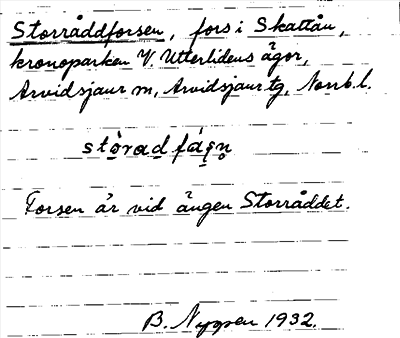 Storråddforsen, fors i Skattån,
kronoparken V. Utterlidens ägor,
Arvidsjaur sn, Arvidsjaur tg, Norrb. l.
Forsen är vid ängen Storråddet.
B. 1932.